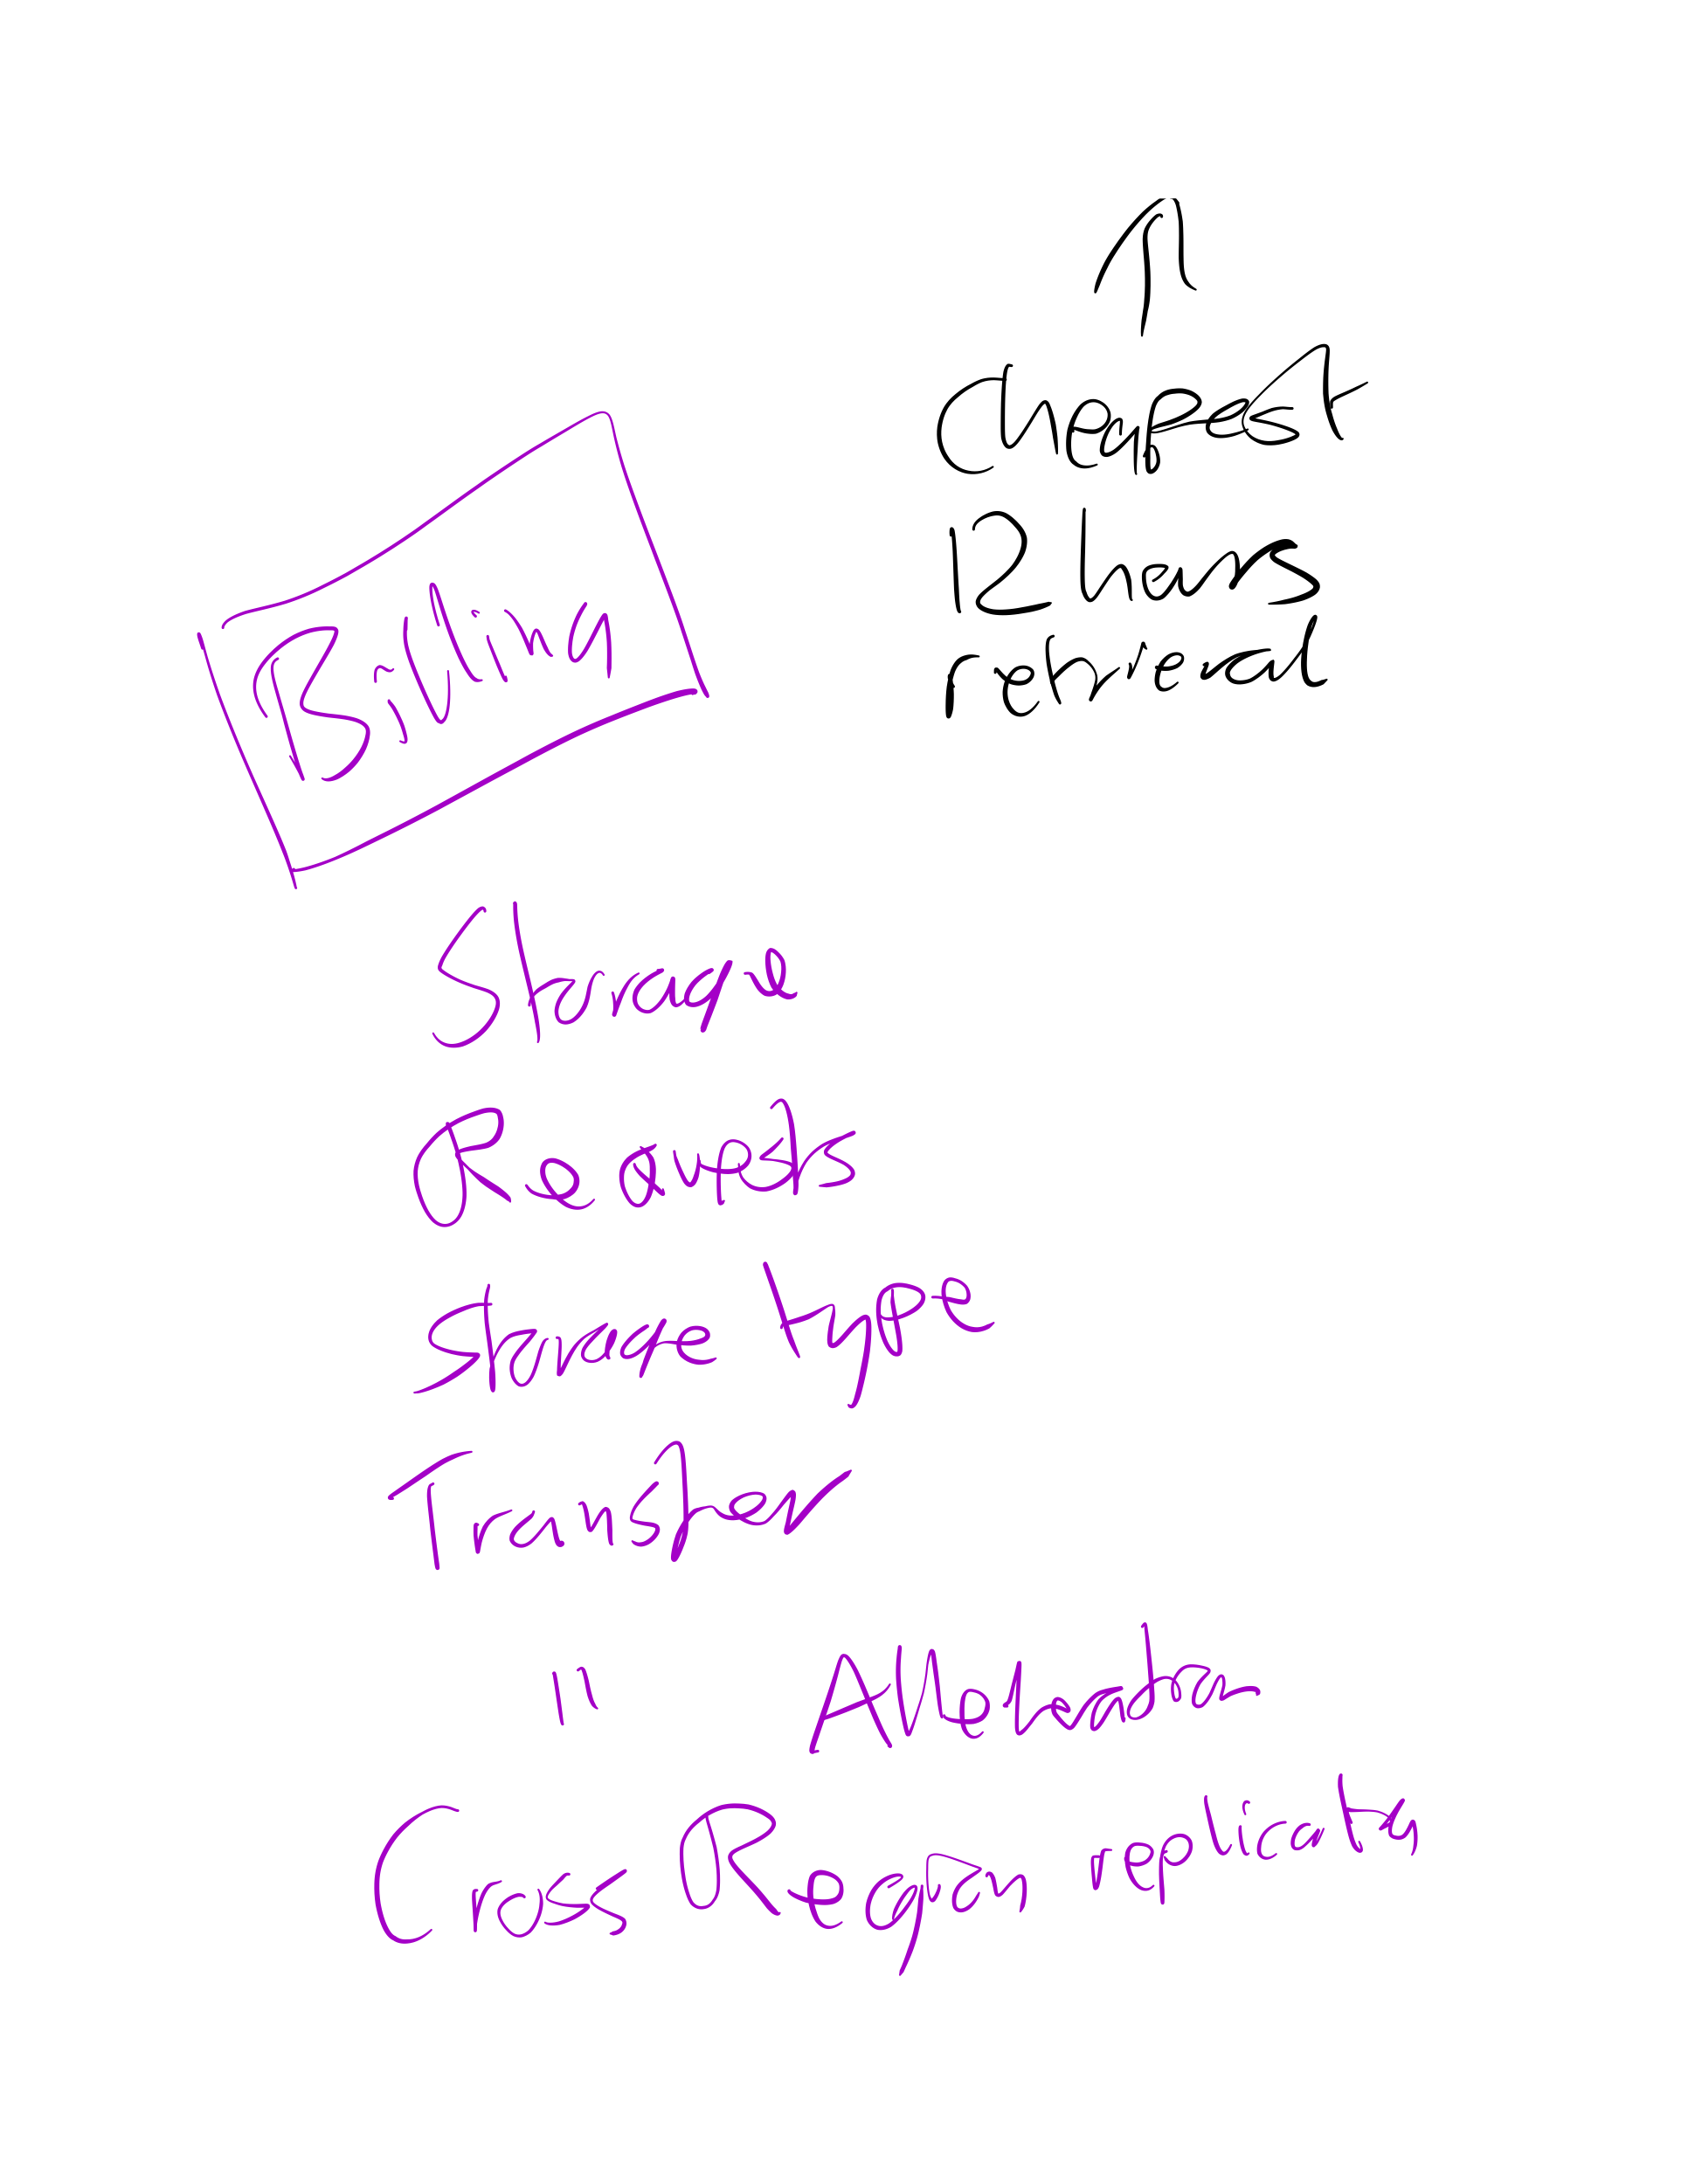 Cheapest
12 hours
retrieval
Billing
Storage
Requests
Storage type
Transfer
"
Cross Region replication